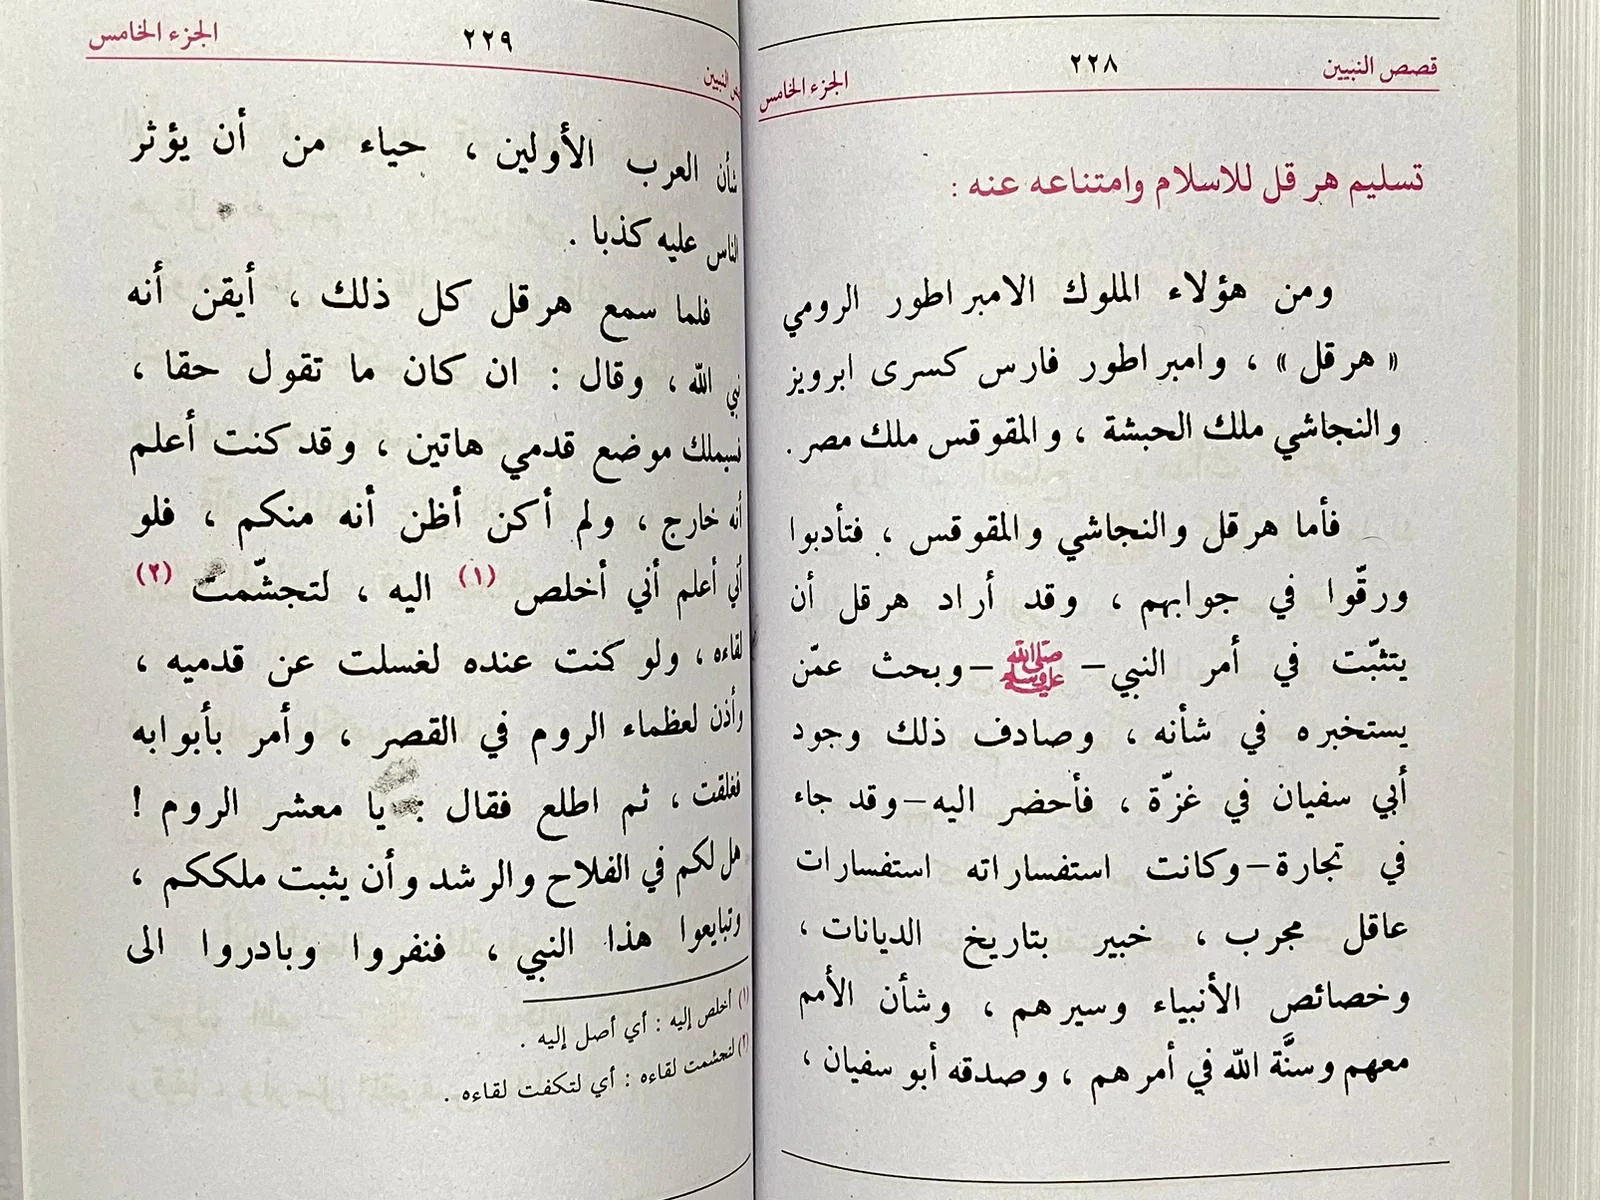 قصص النبيين ٢٢٨ الجزء الخامس
تسليم هرقل للاسلام وامتناعه عنه :
ومن هؤلاء الملوك الامبراطور الرومي
« هرقل » ، وامبراطور فارس كسرى ابرويز
والنجاشي ملك الحبشة ، والمقوقس ملك مصر .
فأما هرقل والنجاشي والمقوقس ، فتأدبوا
ورقّوا في جوابهم ، وقد أراد هرقل أن
يتثبّت في أمر النبي – ﷺ – وبحث عمّن
يستخبره في شأنه ، وصادف ذلك وجود
أبي سفيان في غزّة ، فأحضر اليه – وقد جاء
في تجارة – وكانت استفساراته استفسارات
عاقل مجرب ، خبير بتاريخ الديانات ،
وخصائص الأنبياء وسيرهم ، وشأن الأمم
معهم وسنَّة اللّه في أمرهم ، وصدقه أبو سفيان ،
قصص النبيين ٢٢٩ الجزء الخامس
شأن العرب الأولين ، حياء من أن يؤثر
الناس عليه كذبا .
فلما سمع هرقل كل ذلك ، أيقن أنه
نبي اللّه ، وقال : ان كان ما تقول حقا ،
فسيملك موضع قدمي هاتين ، وقد كنت أعلم
أنه خارج ، ولم أكن أظن أنه منكم ، فلو
أني أعلم أني أخلص (١) اليه ، لتجشّمت (٢)
لقاءه ، ولو كنت عنده لغسلت عن قدميه ،
وأذن لعظماء الروم في القصر ، وأمر بأبوابه
فغلقت ، ثم اطلع فقال : يا معشر الروم !
هل لكم في الفلاح والرشد وأن يثبت ملككم ،
وتبايعوا هذا النبي ، فنفروا وبادروا الى
(١) أخلص إليه : أي أصل إليه .
(٢) لتجشمت لقاءه : أي لتكفت لقاءه .